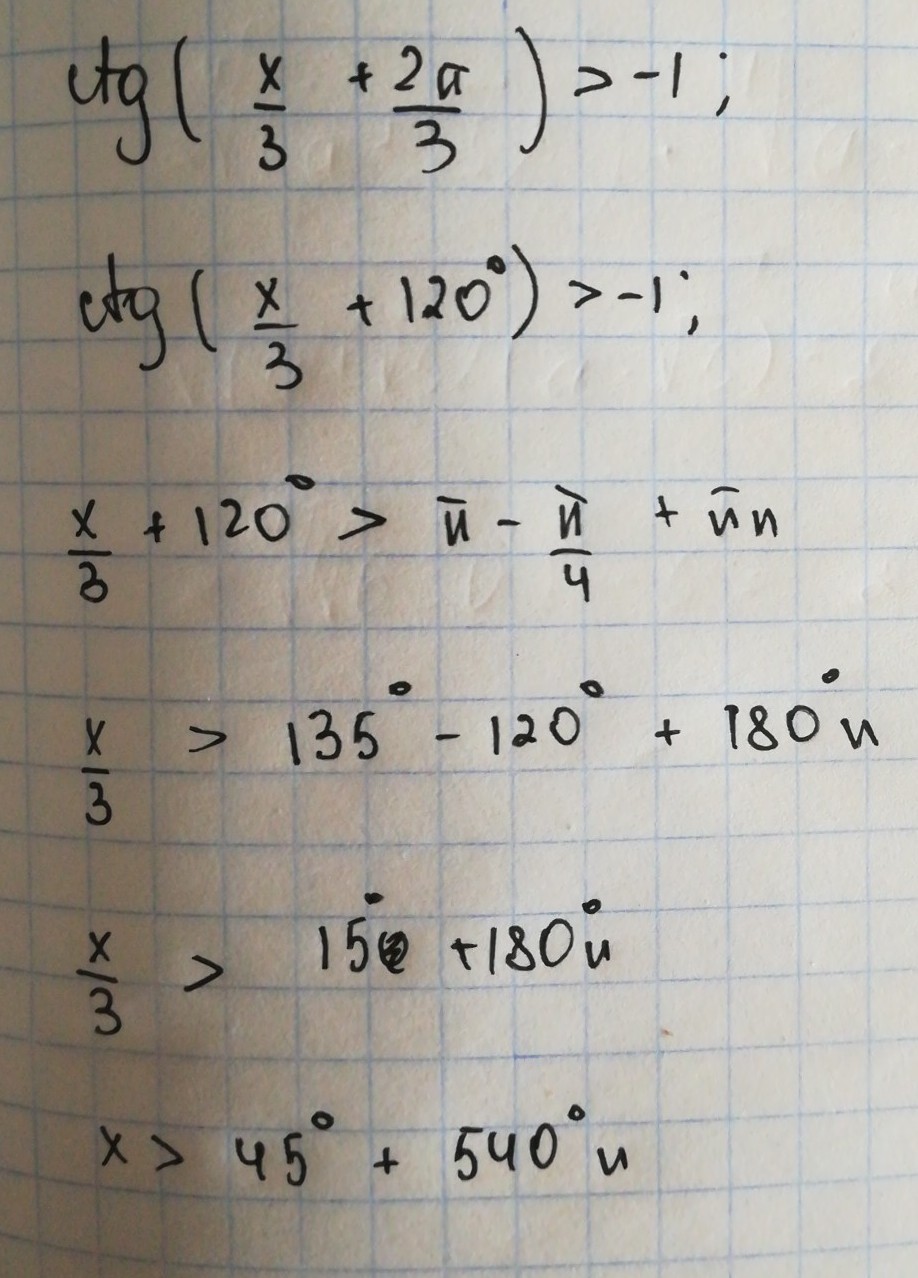 ctg( x/3 + 2π/3 ) > -1 ;
ctg( x/3 + 120° ) > -1 ;
x/3 + 120° > π - π/4 + πn
x/3 > 135° - 120° + 180° n
x/3 > 15° + 180° n
x > 45° + 540° n